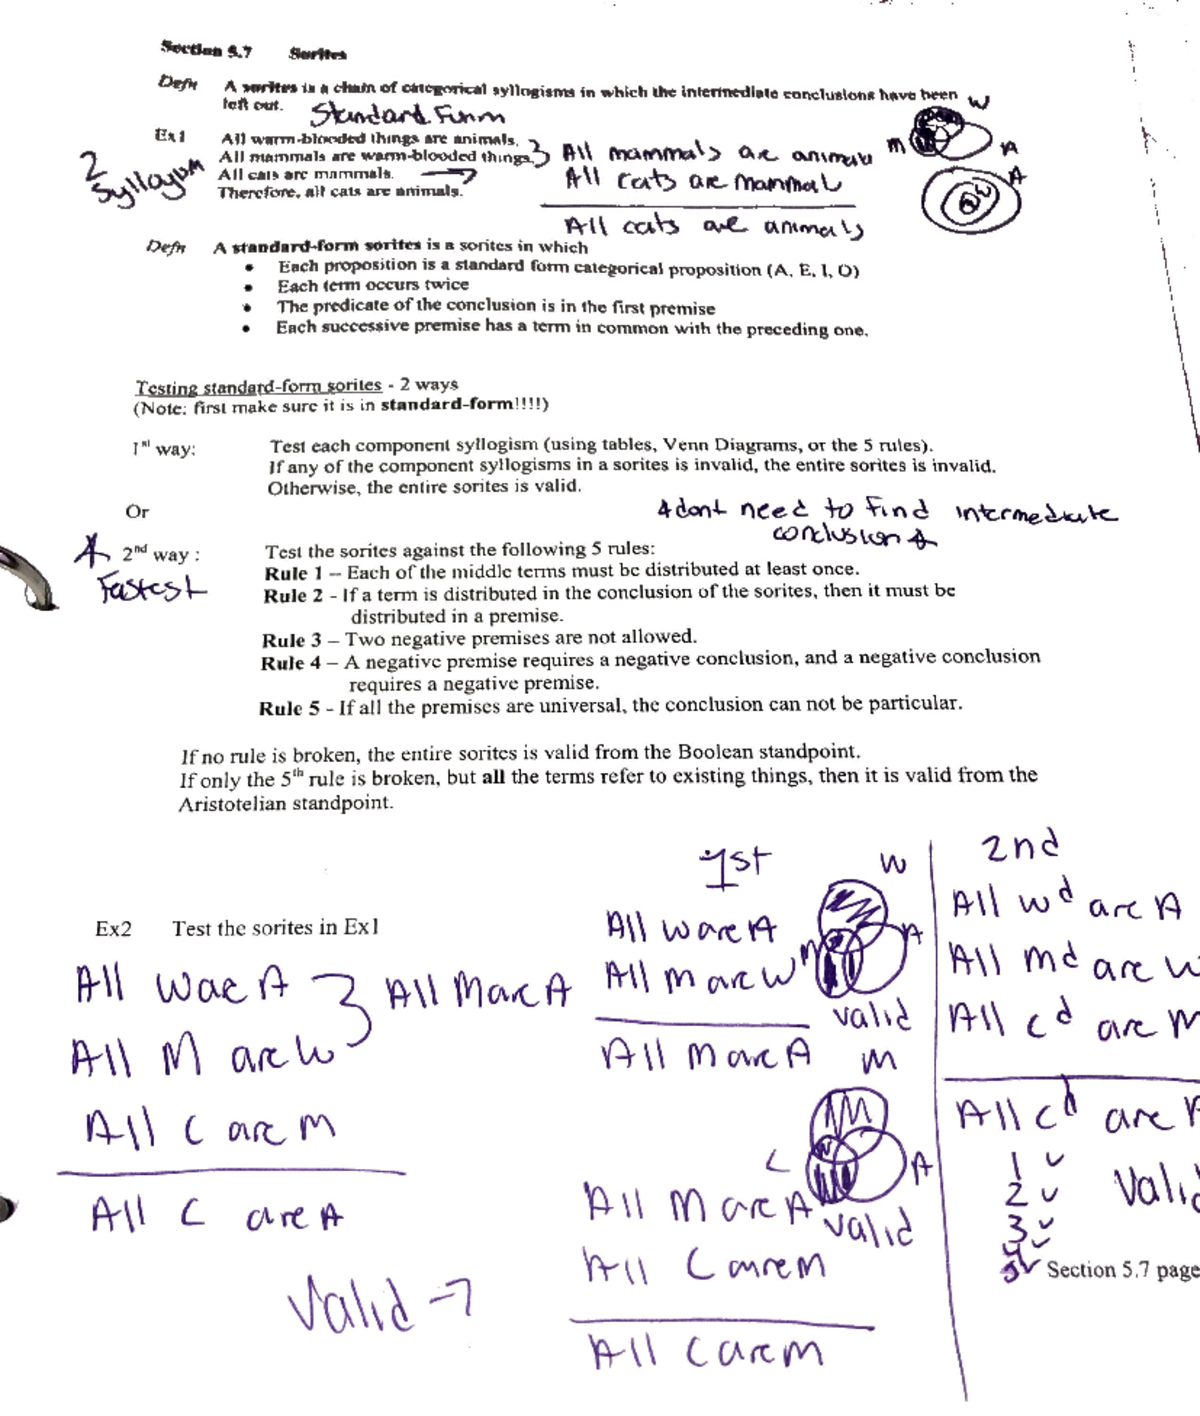 Section 5.7 Sorites
Defn A sorites is a chain of categorical syllogisms in which the intermediate conclusions have been
left out. Standard Form
W
Ex1 All warm-blooded things are animals.
All mammals are warm-blooded things.
All cats are mammals.
Therefore, all cats are animals.
2
Syllogism
All mammals are animals
All cats are mammal
All cats are animals
M A
A
Defn A standard-form sorites is a sorites in which
• Each proposition is a standard form categorical proposition (A, E, I, O)
• Each term occurs twice
• The predicate of the conclusion is in the first premise
• Each successive premise has a term in common with the preceding one.
Testing standard-form sorites - 2 ways
(Note: first make sure it is in standard-form!!!!)
1st way: Test each component syllogism (using tables, Venn Diagrams, or the 5 rules).
If any of the component syllogisms in a sorites is invalid, the entire sorites is invalid.
Otherwise, the entire sorites is valid.
Or
dont need to find intermediate
conclusion
2nd way : Test the sorites against the following 5 rules:
Fastest
Rule 1 – Each of the middle terms must be distributed at least once.
Rule 2 - If a term is distributed in the conclusion of the sorites, then it must be
distributed in a premise.
Rule 3 – Two negative premises are not allowed.
Rule 4 – A negative premise requires a negative conclusion, and a negative conclusion
requires a negative premise.
Rule 5 - If all the premises are universal, the conclusion can not be particular.
If no rule is broken, the entire sorites is valid from the Boolean standpoint.
If only the 5th rule is broken, but all the terms refer to existing things, then it is valid from the
Aristotelian standpoint.
Ex2 Test the sorites in Ex1
All W are A
All M are W
All M are A
All C are M
All C are A
Valid →
1st
W
All W are A
A
All M are W
M
valid
All M are A
M
C A
All M are A
valid
All C are M
All C are M
2nd
All Wd are A
All Md are W
All Cd are M
All Cd are A
1 ✓
2 ✓ Valid
3 ✓
4 ✓
5 ✓
Section 5.7 page